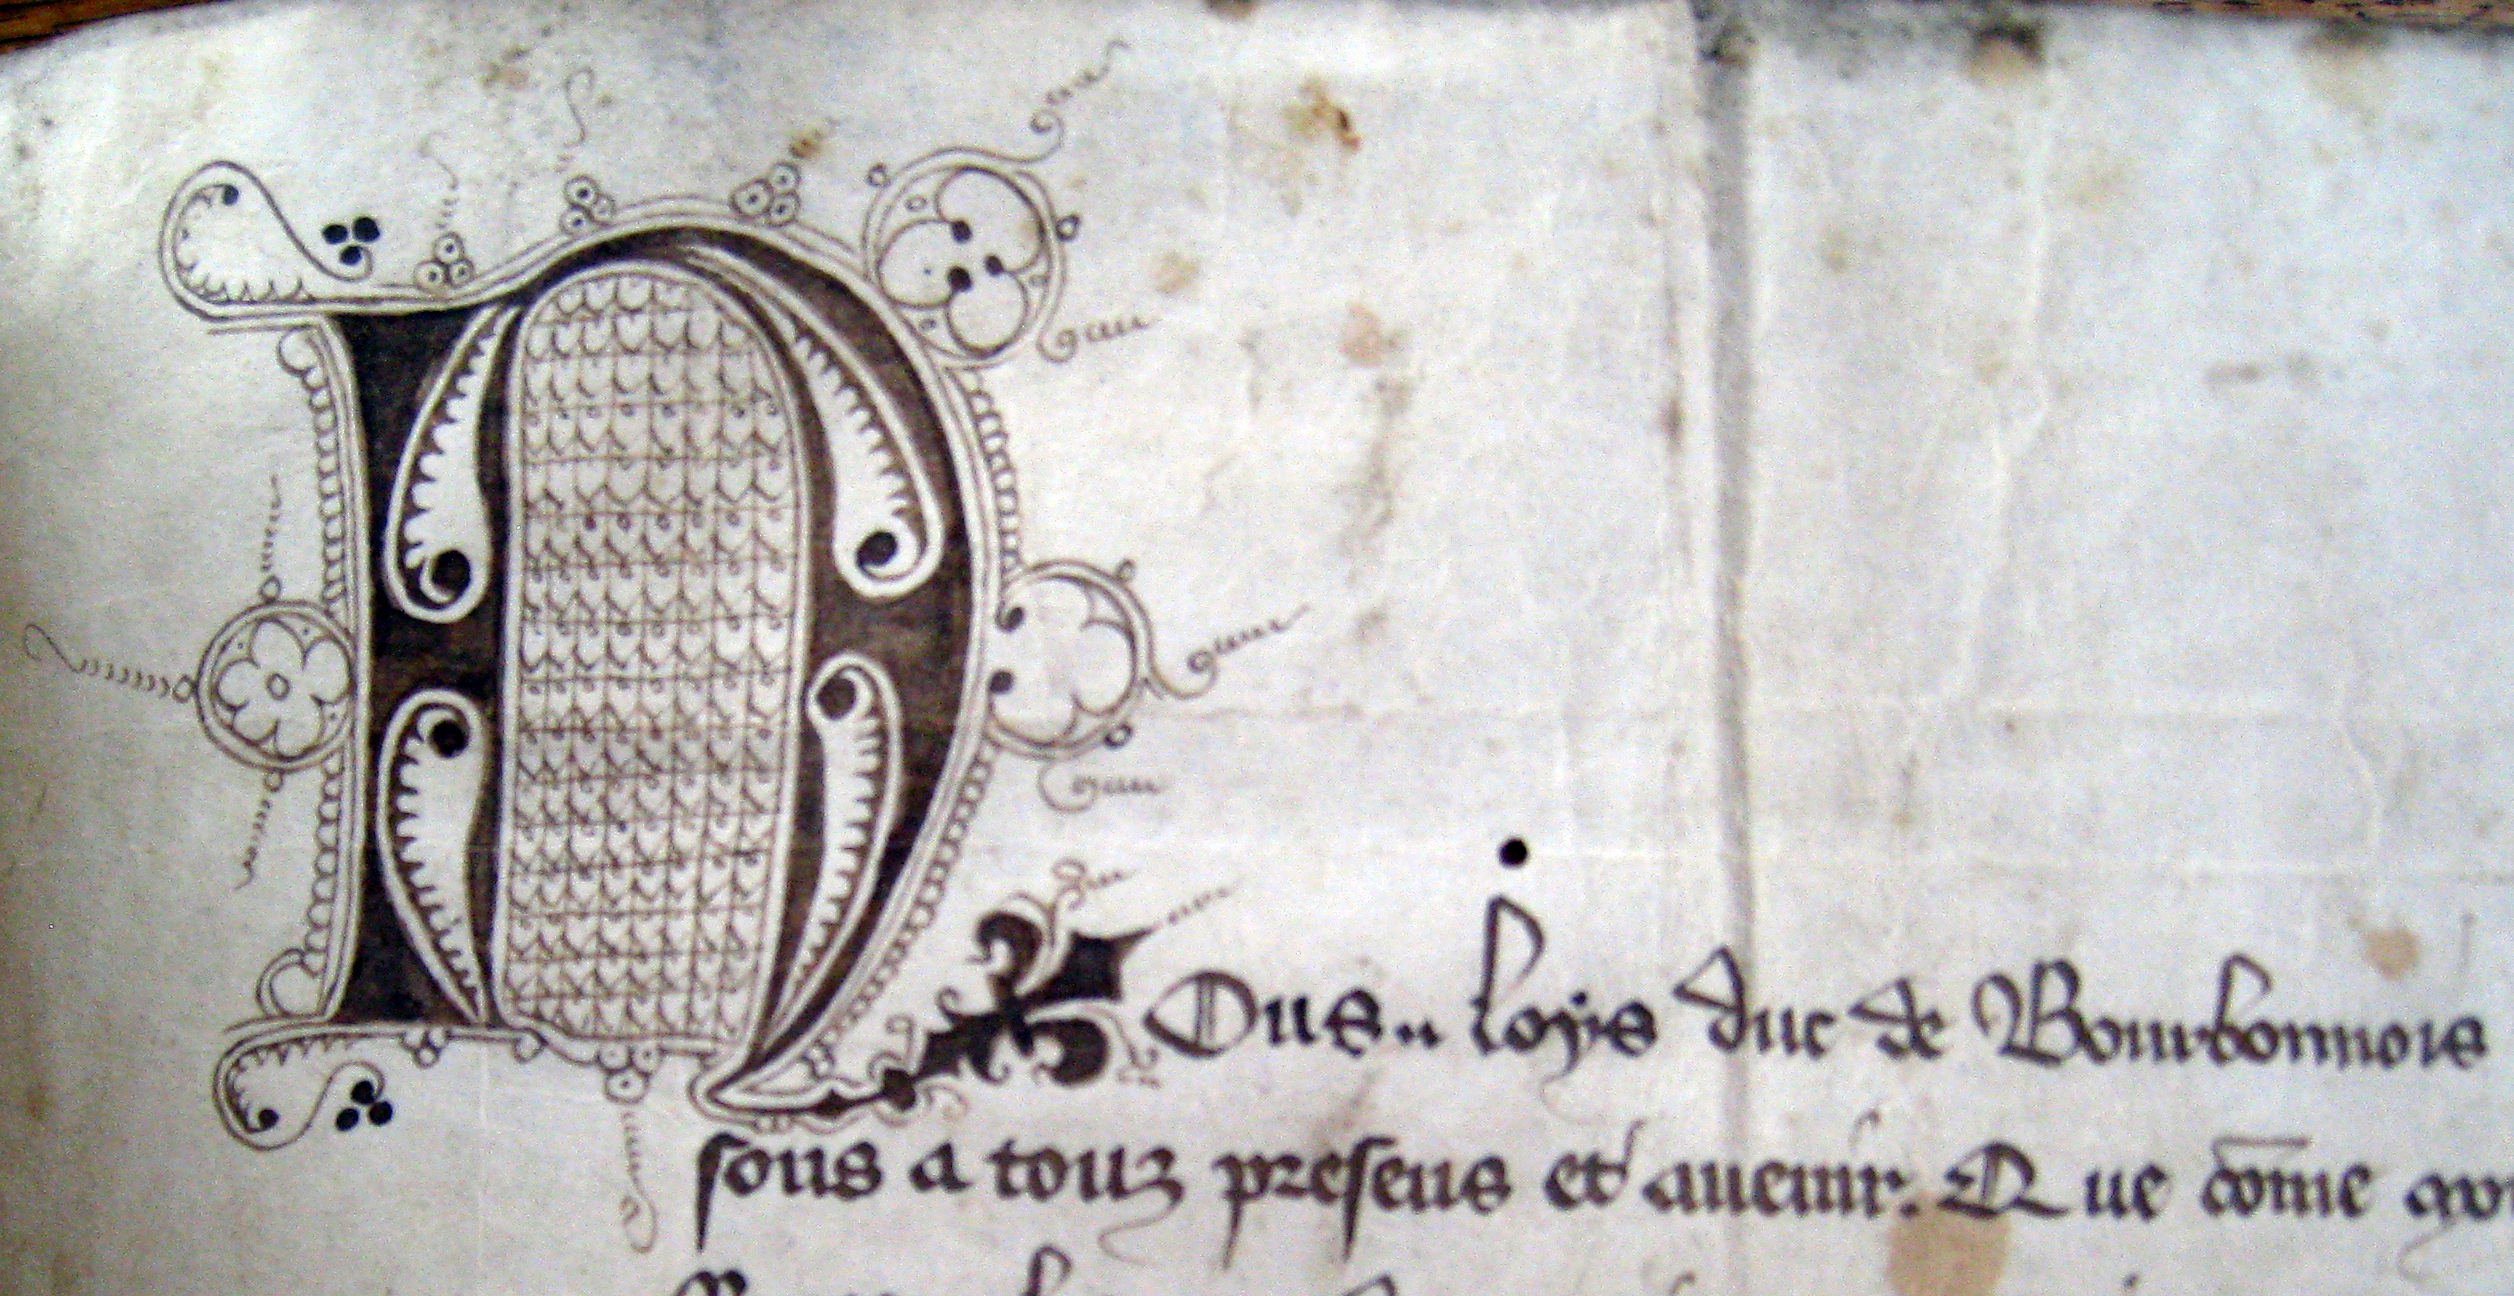 NOus.. loys duc de Bourbonnois
sous a touz presens et auenir. Que cōme